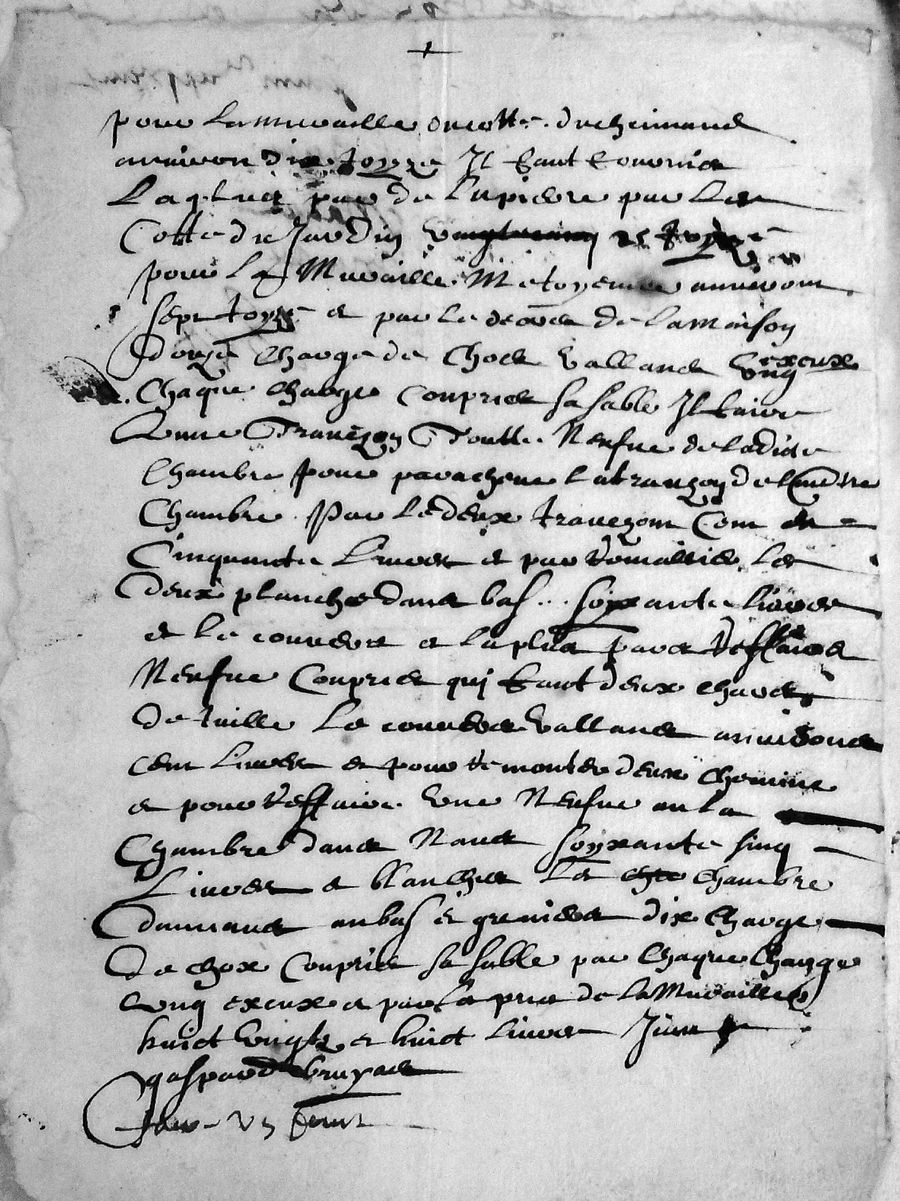 pour la muraille du cotte du cheimand
anviron dix toyze Il faut fournir
la pluis par de la pierre par les
Cotte du Jardin 25 toyze
pour la Muraille Mitoyenne anviron
sept toyze et par le deors de la maison
Douze charge de choes vallant ung exeux
Chaque charge compries sa sable Il faire
une Traveyzon Toutte Neufve de la dite
Chambre pour parachene la travezon de
Chambre Par le deux travezon Cent et
Cinquante Livres et par les
deux planche dans bas soyxante livres
et le couvert et la pluis part Reffaire
Neufve Compries qui faut deux charge
de tuille le couvert vallant anvirons
cent Livres et pour remonter deux chemine
et pour Reffaire une Neufve an la
Chambre dans Naut soyxante sinq
Livres et blancher les chambre
dannant anbas et grenier dix charge
De chox compries sa sable par chaque charge
ung exeux et par la pris de la Muraille
huict vingts et huict livres
gaspard bruyas